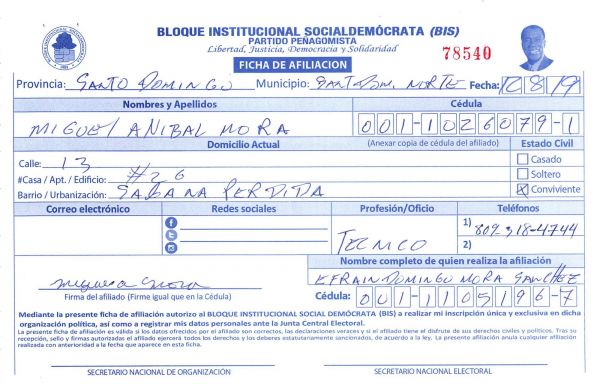 BLOQUE INSTITUCIONAL SOCIALDEMÓCRATA (BIS)
PARTIDO PEÑAGOMISTA
Libertad, Justicia, Democracia y Solidaridad
78540
FICHA DE AFILIACION
Provincia: SANTO DOMINGO Municipio: SANTO DOM. NORTE Fecha: 10/8/19
Nombres y Apellidos Cédula
MIGUEL ANIBAL MORA 001-1026079-1
Domicilio Actual (Anexar copia de cédula del afiliado) Estado Civil
Calle: 13 Casado
#Casa / Apt. / Edificio: #26 Soltero
Barrio / Urbanización: SABANA PERDIDA X Conviviente
Correo electrónico Redes sociales Profesión/Oficio Teléfonos
TECNICO 1) 809 318-4744
2)
Nombre completo de quien realiza la afiliación
EFRAIN DOMINGO MORA SANCHEZ
Firma del afiliado (Firme igual que en la Cédula) Cédula: 001-1105196-7
Mediante la presente ficha de afiliación autorizo al BLOQUE INSTITUCIONAL SOCIAL DEMÓCRATA (BIS) a realizar mi inscripción única y exclusiva en dicha
organización política, así como a registrar mis datos personales ante la Junta Central Electoral.
La presente ficha de afiliación es válida si los datos ofrecidos por el afiliado son correctos, las declaraciones veraces y si el afiliado tiene el disfrute de sus derechos civiles y políticos. Tras su
recepción, sello y firmas autorizadas el afiliado ejercerá todos los derechos y los deberes estatutariamente sancionados, de acuerdo a la ley. La presente afiliación anula cualquier afiliación
realizada con anterioridad a la fecha que aparece en esta ficha.
SECRETARIO NACIONAL DE ORGANIZACIÓN SECRETARIO NACIONAL ELECTORAL